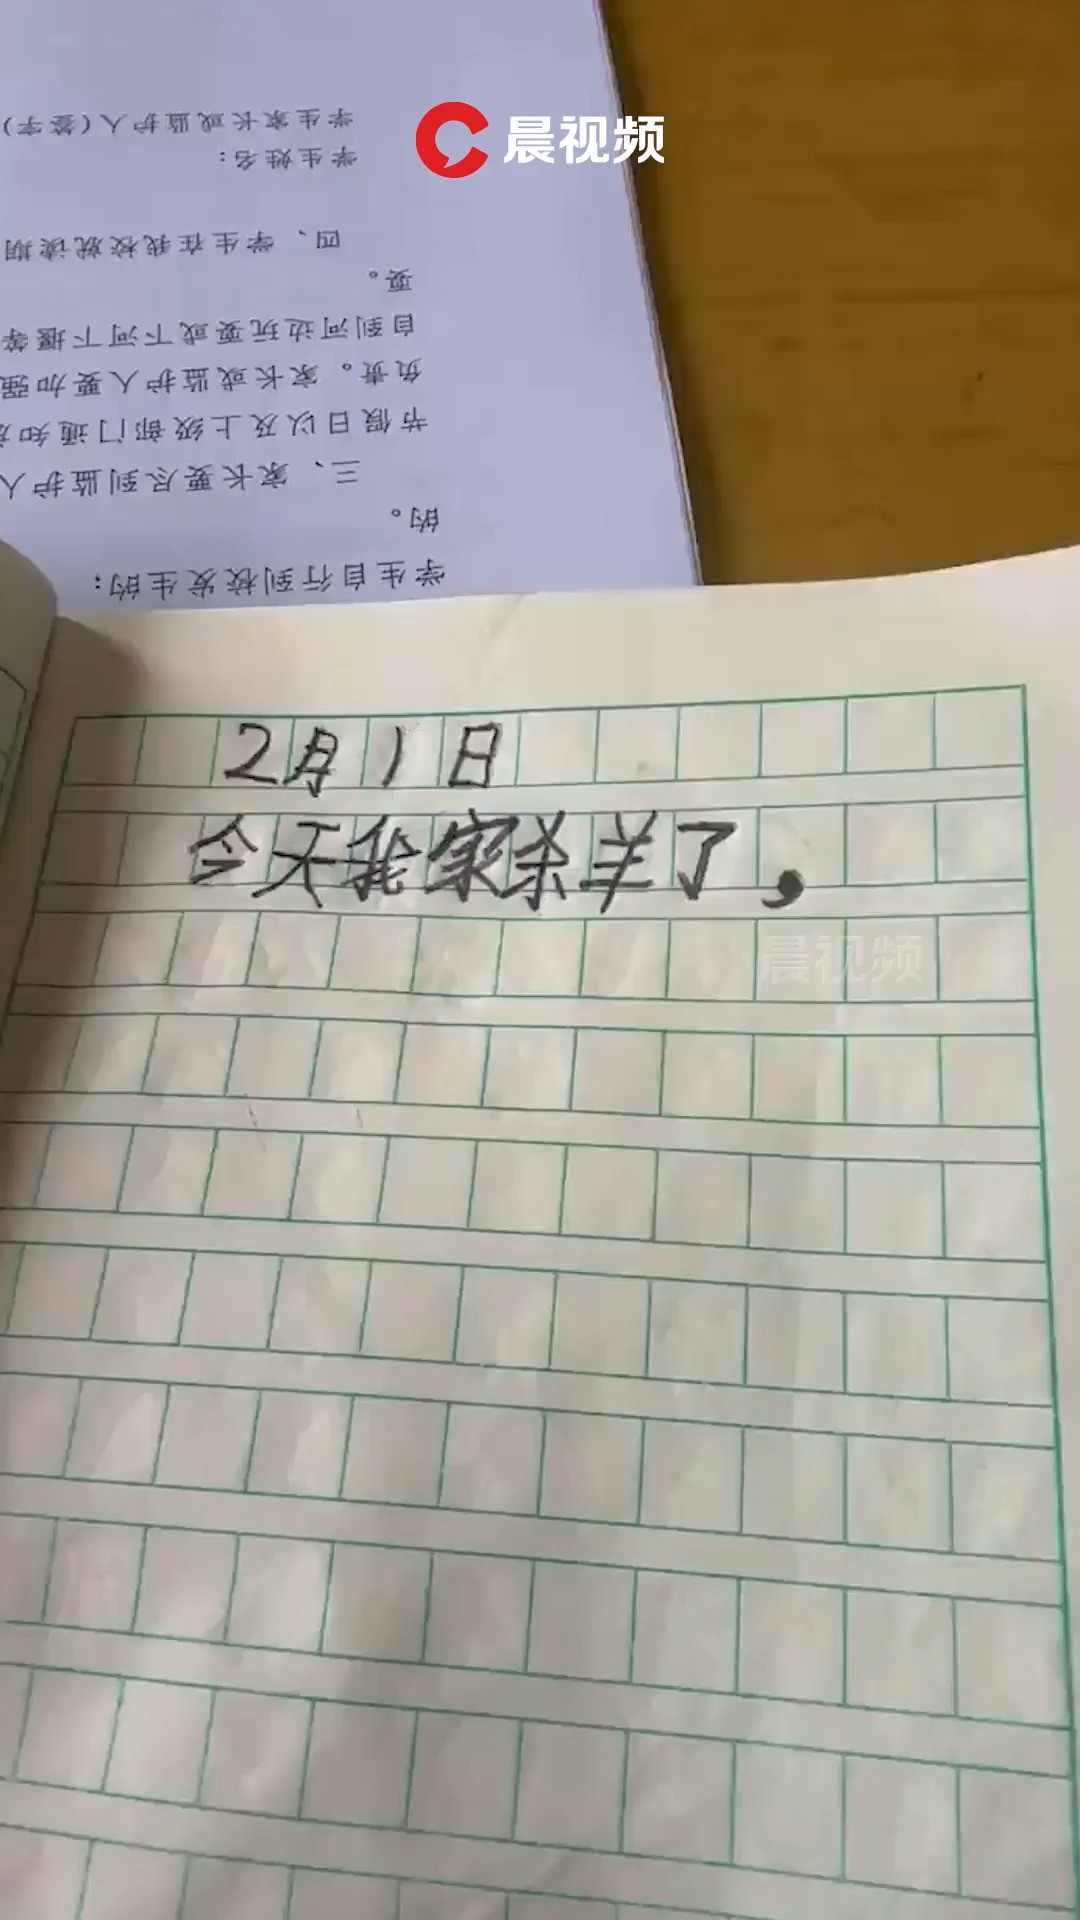 晨视频
学生家长或监护人（签字）
学生姓名：
四、学生在我校就读期
耍。
自到河边玩耍或下河下堰等
负责。家长或监护人要加强
节假日以及上级部门通知
三、家长要尽到监护人
的。
学生自行到校发生的；
2月1日
今天我家杀羊了，
晨视频